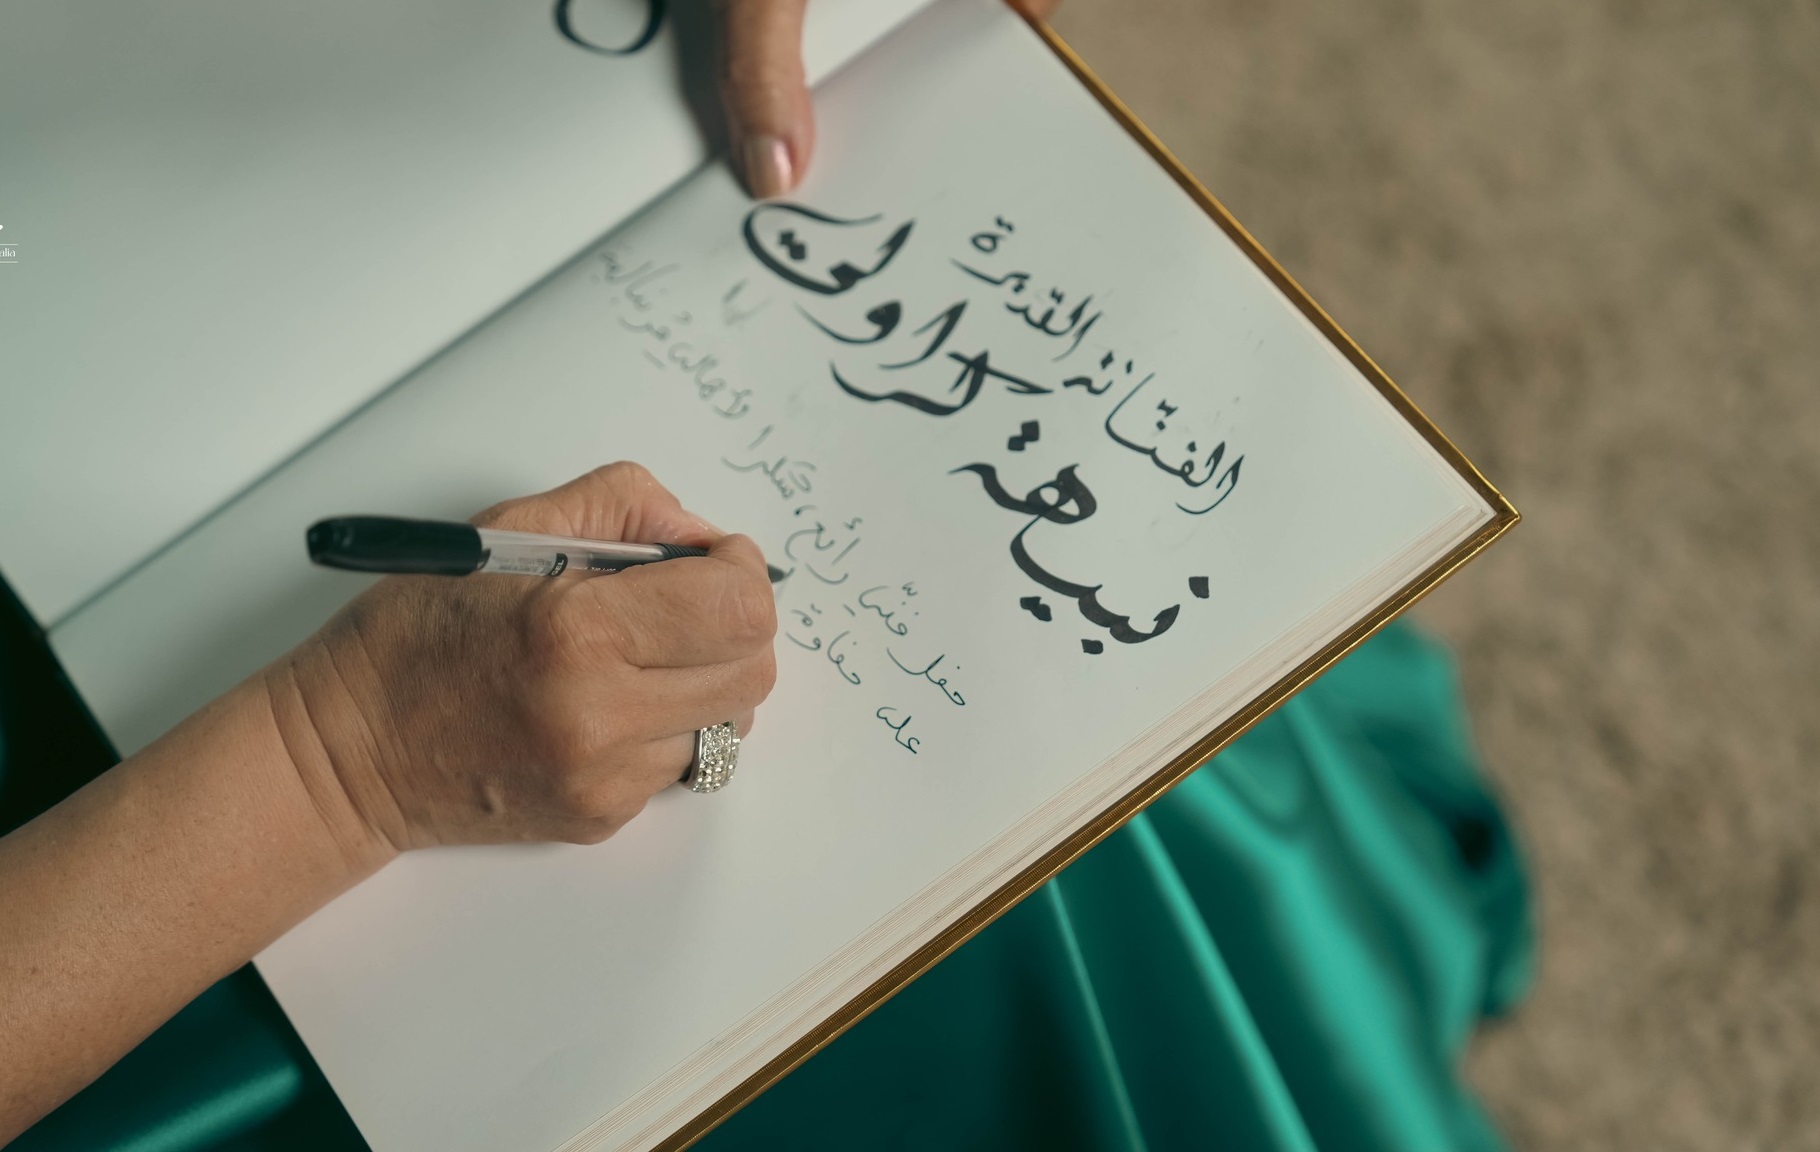 الفنّانة القديرة
نبيهة كراولي
حفل فنّي رائع، شكرا لأجمالك فرسالية
على حفاوة
alia